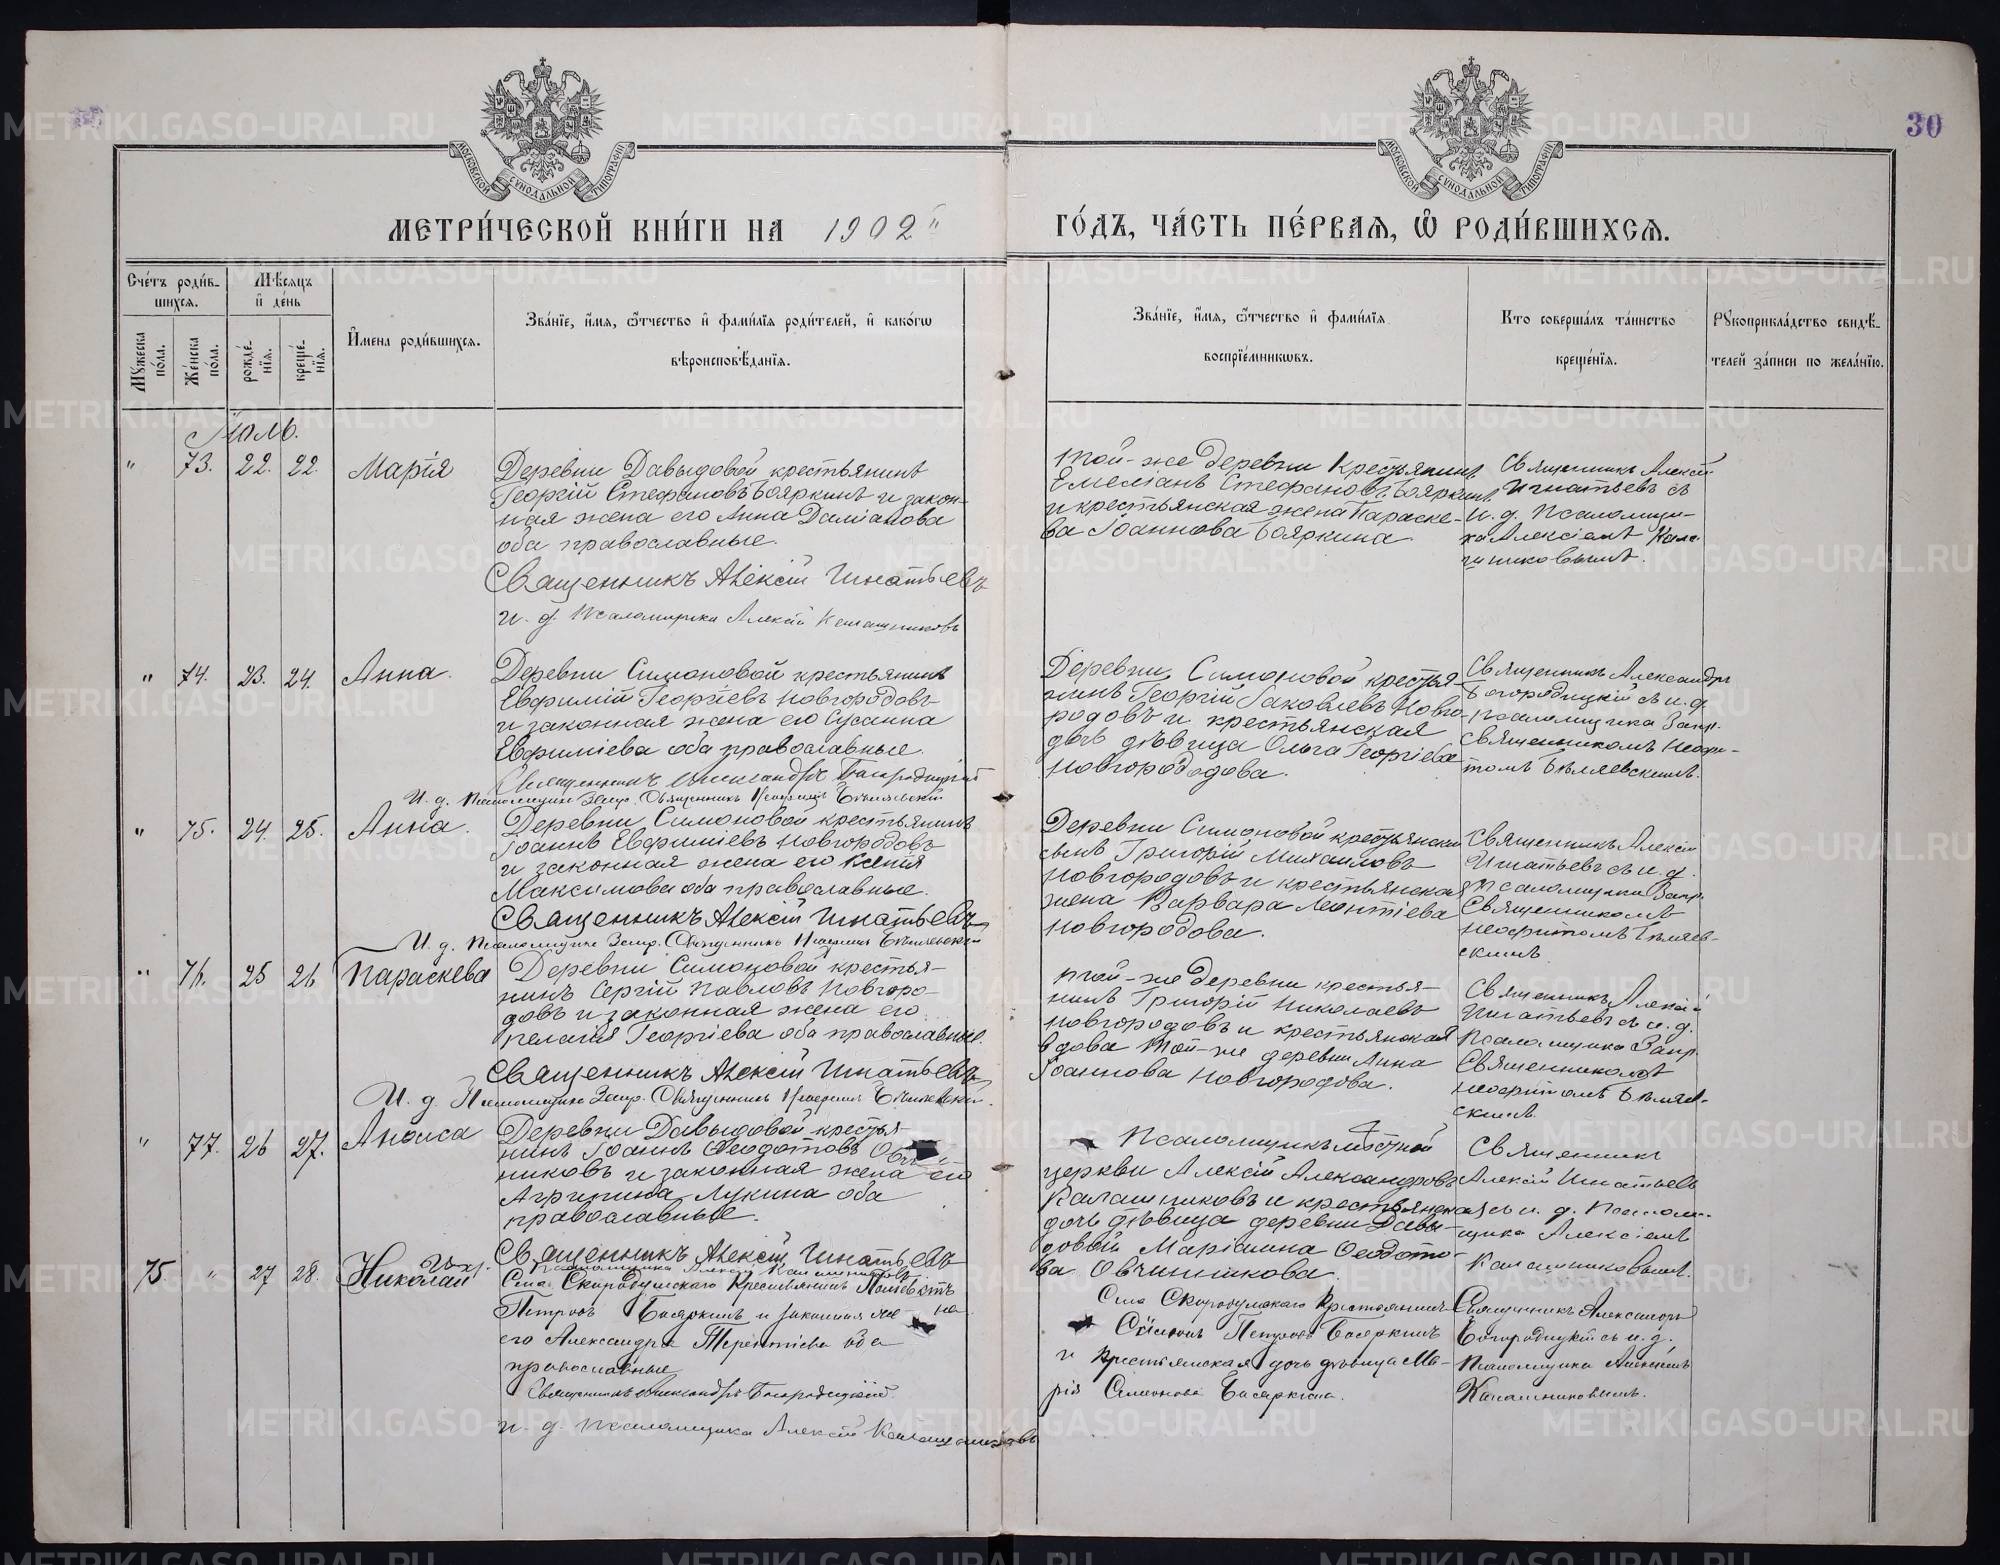 30
МОСКОВСКОЙ СУНОДАЛЬНОЙ ТИПОГРАФІИ
МОСКОВСКОЙ СУНОДАЛЬНОЙ ТИПОГРАФІИ
МЕТРИ́ЧЕСКОЙ КНИ́ГИ НА 1902
ГО́ДЪ, ЧА́СТЬ ПЕ́РВАѦ, Ѽ РОДИ́ВШИХСѦ.
Сче́тъ роди́в-
шихсѧ.
Мѣ́сѧцъ
и҆ де́нь
Мꙋжеска по́ла.
Же́нска по́ла.
рожде́-
нїѧ.
креще́-
нїѧ.
И҆мена роди́вшихсѧ.
Зва́нїе, и҆́мѧ, ѻ҆́тчество и҆ фами́лїѧ роди́телей, и҆ како́гѡ
вѣроисповѣ́данїѧ.
Зва́нїе, и҆́мѧ, ѻ҆́тчество и҆ фами́лїѧ
воспрїе́мникѡвъ.
Кто соверша́лъ та́инство
креще́нїѧ.
Рꙋкоприкла́дство свидѣ́-
телей за́писи по жела́нїю.
Іюль.
" 73. 22. 22. Марія
Деревни Давыдовой крестьянинъ
Георгій Стефановъ Бояркинъ и закон-
ная жена его Анна Даміанова
оба православные.
Священникъ Алексій Игнатьевъ
и. д. псаломщика Алексій Калашниковъ
той-же деревни крестьянинъ
Емеліанъ Стефановъ Бояркинъ
и крестьянская жена Параске-
ва Іоаннова Бояркина
Священникъ Алексій
Игнатьевъ съ
и. д. псаломщи-
ка Алексіемъ Кала-
шниковымъ.
" 74. 23. 24. Анна.
Деревни Симоновой крестьянинъ
Евфимій Георгіевъ Новгородовъ
и законная жена его Сусанна
Евфиміева оба православные.
Священникъ Александръ Богородицкій
И. д. псаломщика Запр. Священникъ Неофитъ Бѣляевскій
Деревни Симоновой крестья-
нинъ Георгій Іаковлевъ Новго-
родовъ и крестьянская
дочь дѣвица Ольга Георгіева
Новгорододова.
Священникъ Александръ
Богородицкій съ и. д.
псаломщика Запр.
священникомъ Неофи-
томъ Бѣляевскимъ.
" 75. 24. 25. Анна.
Деревни Симоновой крестьянинъ
Іоаннъ Евфиміевъ Новгородовъ
и законная жена его Ксенія
Максимова оба православные.
Священникъ Алексій Игнатьевъ
И. д. псаломщика Запр. Священникъ Неофитъ Бѣляевскій
Деревни Симоновой крестьянскій
сынъ Григорій Михаиловъ
Новгородовъ и крестьянская
жена Варвара Леонтіева
Новгородова.
Священникъ Алексій
Игнатьевъ съ и. д.
псаломщика Запр.
Священникомъ
Неофитомъ Бѣляев-
скимъ.
" 76. 25 26 Параскева
Деревни Симоновой крестья-
нинъ Сергій Павловъ Новгоро-
довъ и законная жена его
Пелагія Георгіева оба православные.
Священникъ Алексій Игнатьевъ
И. д. Псаломщика Запр. Священникъ Неофитъ Бѣляевскій.
той-же деревни крестья-
нинъ Григорій Николаевъ
Новгородовъ и крестьянская
вдова той-же деревни Анна
Іоаннова Новгородова.
Священникъ Алексій
Игнатьевъ съ и. д.
псаломщика Запр.
Священникомъ
Неофитомъ Бѣляев-
скимъ.
" 77. 26 27. Анѳиса
Деревни Давыдовой крестья-
нинъ Іоаннъ Ѳеодотовъ Овчин-
никовъ и законная жена его
Агрипина Лукина оба
православные.
Священникъ Алексій Игнатьевъ
И. д. псаломщика Алексій Калашниковъ
Псаломщикъ мѣстной
церкви Алексій Александровъ
Калашниковъ и крестьянская
дочь дѣвица деревни Давы-
довой Маріамна Ѳеодото-
ва Овчинникова.
Священникъ
Алексій Игнатьевъ
съ и. д. псалом-
щика Алексіемъ
Калашниковымъ.
75 " 27 28. Николай
Села Скородумскаго крестьянинъ
Петровъ Бояркинъ и законная же-на
его Александра Терентіева оба
православные
Священникъ Александръ Богородицкій.
и. д. псаломщика Алексій Калашниковъ
Села Скородумскаго крестьянинъ
Симеонъ Петровъ Бояркинъ
и крестьянская дочь дѣвица Ма-
рія Симеонова Бояркина.
Священникъ Александръ
Богородицкій съ и. д.
псаломщика Алексіемъ
Калашниковымъ.
METRIKI.GASO-URAL.RU